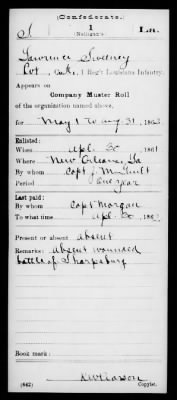 (Confederate.)
S 1 La.
(Nelligan's.)
Lawrence Sweeney
Pvt, Co. , 1 Reg't Louisiana Infantry.
Appears on
Company Muster Roll
of the organization named above,
for May 1 to Aug 31, 186
Enlisted:
When Apl. 30, 1861
Where New Orleans, La
By whom Capt J.
Period One year
Last paid:
By whom Capt Morgan
To what time Apl. 30, 186
Present or absent absent
Remarks: absent wounded
battle of Sharpsburg
Book mark:
(642) Copyist.